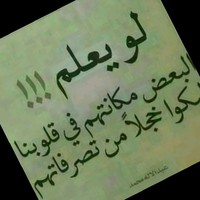 لو يعلم !!!
البعض مكانتهم في قلوبنا
لبكوا خجلاً من تصرفاتهم